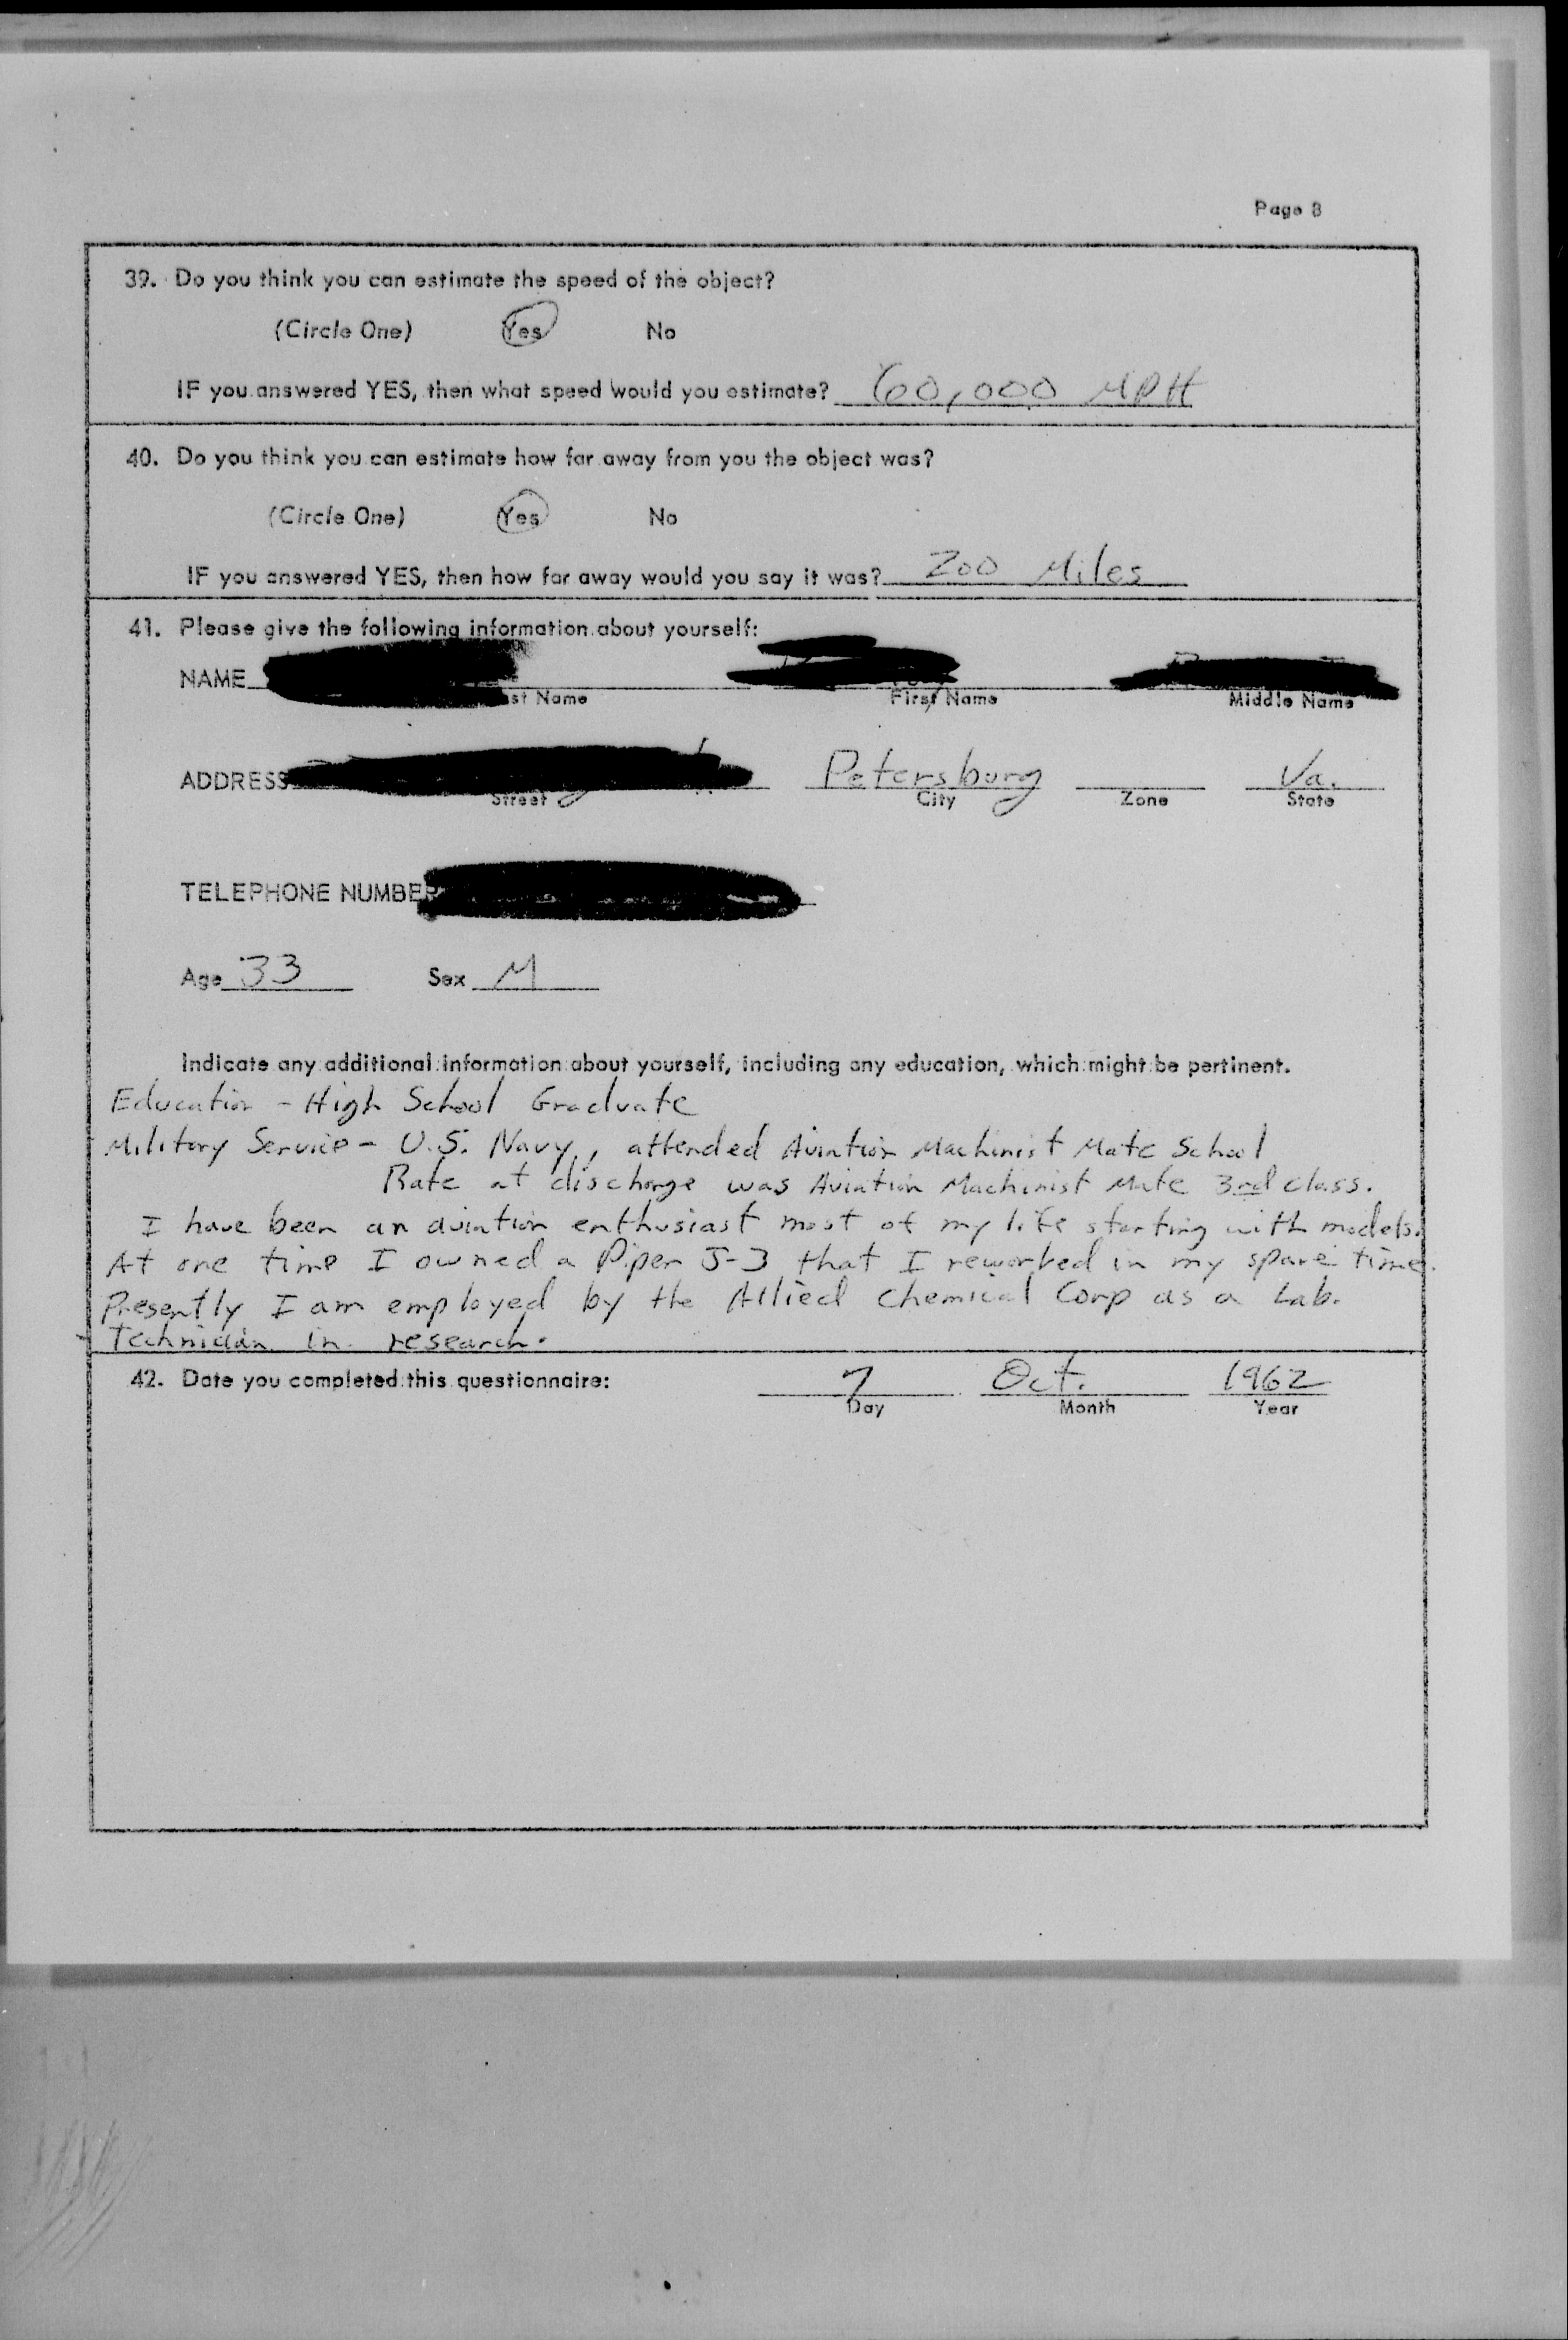 Page 8
39. Do you think you can estimate the speed of the object?
(Circle One) Yes No
IF you answered YES, then what speed would you estimate? 60,000 MPH
40. Do you think you can estimate how far away from you the object was?
(Circle One) Yes No
IF you answered YES, then how far away would you say it was? 200 Miles
41. Please give the following information about yourself:
NAME
st Name First Name Middle Name
ADDRESS Petersburg Va.
Street City Zone State
TELEPHONE NUMBER
Age 33 Sex M
Indicate any additional information about yourself, including any education, which might be pertinent.
Education - High School Graduate
Military Service - U.S. Navy, attended Aviation Machinist Mate School
Rate at discharge was Aviation Machinist Mate 3rd class.
I have been an aviation enthusiast most of my life starting with models.
At one time I owned a Piper J-3 that I reworked in my spare time.
Presently I am employed by the Allied Chemical Corp as a Lab.
Technician in research.
42. Date you completed this questionnaire: 7 Oct. 1962
Day Month Year